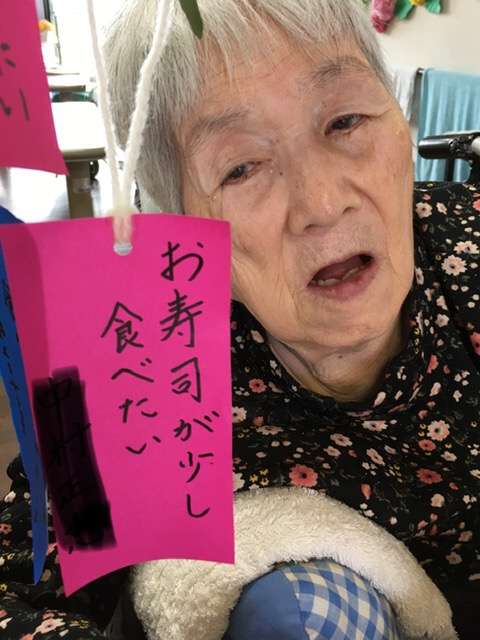 お寿司が少し
食べたい
たい